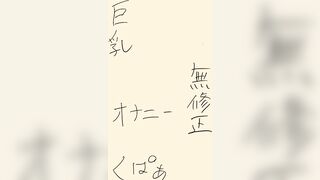 無修正
巨乳
オナニー
くぱぁ